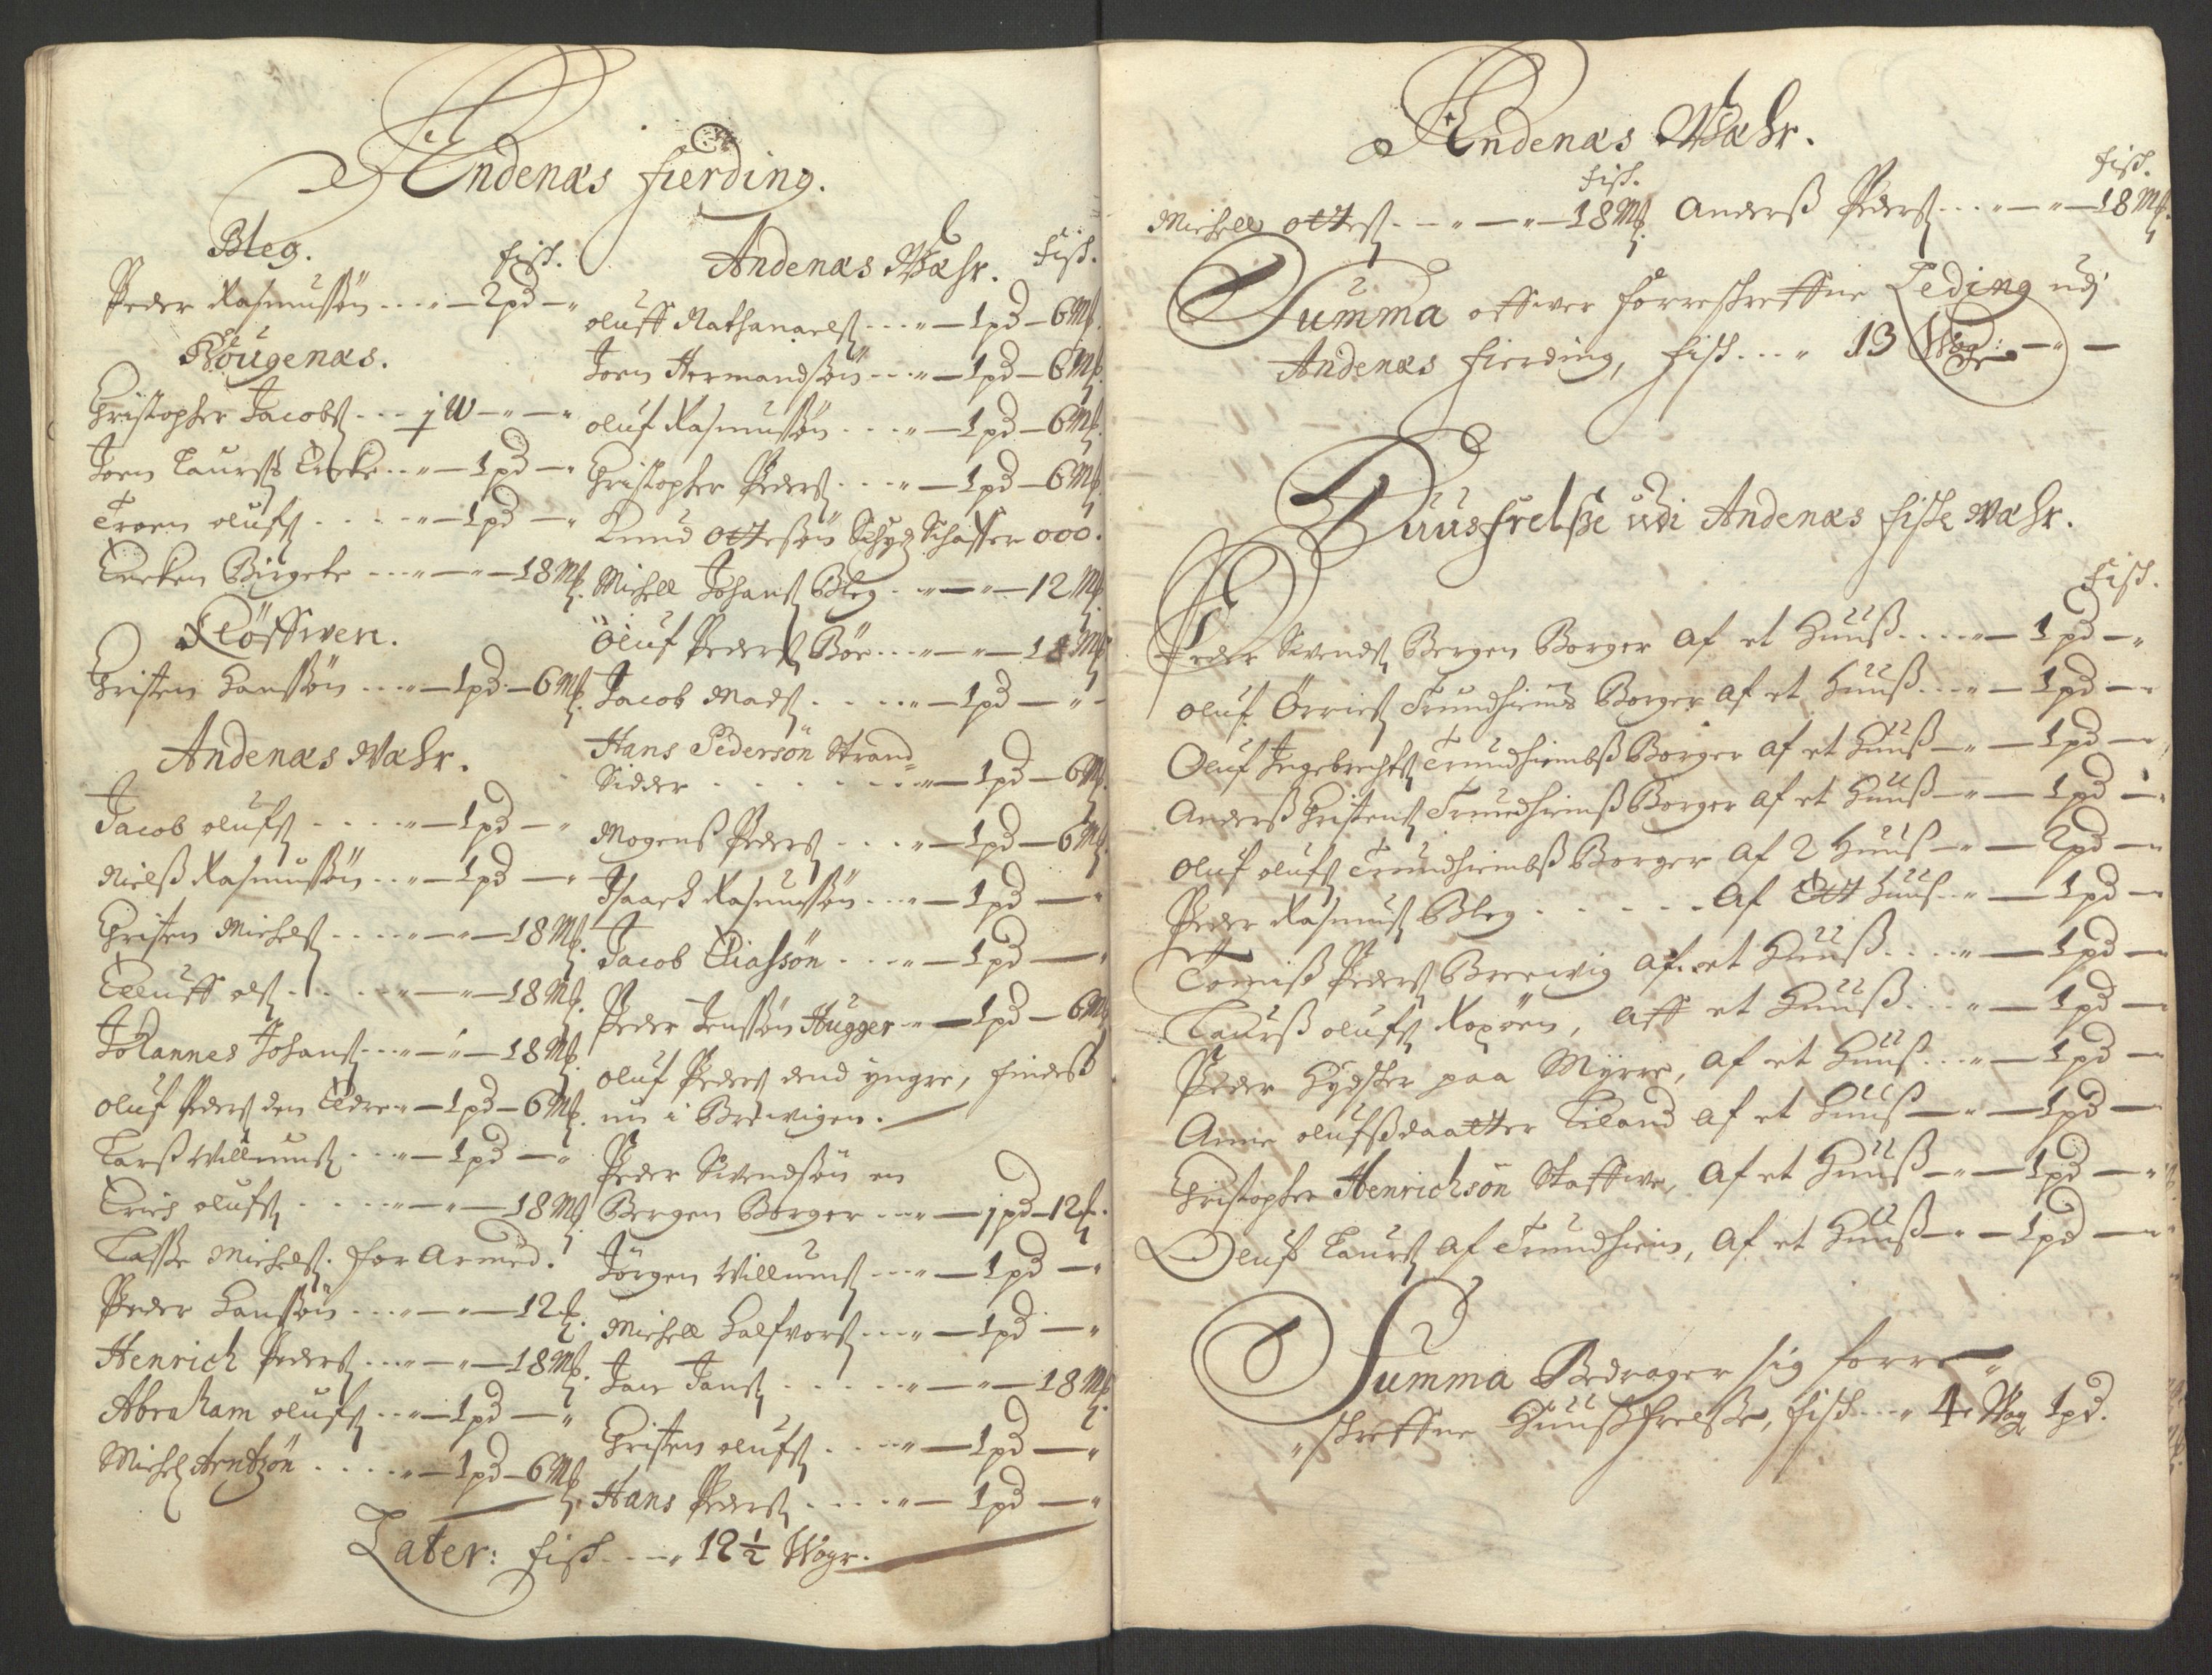 Andenæs fierding.
Bleg.
fisk.
Peder Rasmussøn . . . „ — 2 pd — „
Røugenæs.
Christopher Jacobs. . . . j W — „ — „
Joen Laurs. . . „ — 1 pd — „
Troen olufs. . . . . „ — 1 pd — „
Birgete . . . „ — „ — 18 Mk.
Kløffwen.
Christen Hanssøn . . . „ — 1 pd — 6 Mk.
Andenæs Wæhr.
Jacob olufs. . . . . „ — 1 pd — „
Nielß Rasmussøn . . „ — 1 pd — „
Christen Michels. . . . . „ — „ — 18 Mk.
Elluff ols. . . . . „ — „ — 18 Mk.
Johannes Johans. . . . „ — „ — 18 Mk.
oluf Peders. den Eldre „ — 1 pd — 6 Mk.
Larß Willums. . . . „ — 1 pd — „
Erich olufs. . . . . „ — „ — 18 Mk.
Lasse Michels. for Armod.
Peder Hanssøn . . . „ — „ — 12 Mk.
Henrich Peders. . . . „ — „ — 18 Mk.
Abraham olufs. . . „ — 1 pd — „
Michel Arntzøn . . . . „ — 1 pd — 6 Mk.
Andenæs Wæhr.
fisk.
oluff Nathanaels. . . . „ — 1 pd — 6 Mk.
Joen Hermandsøn . . . „ — 1 pd — 6 Mk.
oluf Rasmussøn . . . „ — 1 pd — 6 Mk.
Christopher Peders. . . . „ — 1 pd — 6 Mk.
Knud Ottesøn Schydschaffer 000.
Michell Johans. Bleg . „ — „ — 12 Mk.
Oluf Peders. Böe . . . „ — „ — 18 Mk.
Jacob Mads. . . . . „ — 1 pd — „ -
Hans Pedersøn Strand=
Sidder . . . . . . . „ — 1 pd — 6 Mk.
Mogenß Peders. . . . . „ — 1 pd — 6 Mk.
Isaach Rasmussøn . . . „ — 1 pd — „
Jacob Eliassøn . . . „ — 1 pd — „
Peder Jenssøn Hugger „ — 1 pd — 6 Mk.
oluf Peders. dend yngre, findeß
nu i Brewigen.
Peder Swendsøn en
Bergen Borger . . . „ — j pd — 12 Mk.
Jørgen Willums. . . . „ — 1 pd — „
Michell Halfvors. . . . „ — 1 pd — „
Jans. . . . . . „ — „ — 18 Mk.
Christen olufs. . . . . „ — 1 pd — „
Hans Peders. . . . . „ — 1 pd — „
Later: fisk . . . „ 12½ Wogr.
Andenæs Wæhr.
fisk.
fisk.
Michell ottes. . . . „ — „ — 18 Mk. Anderß Peders. . . . „ — „ — 18 Mk.
Summa offwer forreskreffne Leding udj
Andenæs fierding, fisk . . . „ 13 Woger — „ —
Huusfrelsße udi Andenæs fiske Wæhr.
fisk.
Peder Swends. Bergen Borger af et Huuß . . . . „ — 1 pd — „
oluf Örries. Trundhiems Borger af et Huuß . . . „ — 1 pd — „
Oluf Ingebrechts. Trundhiembß Borger af et Huuß — „ — 1 pd — „
Anderß Christens. Trundhiemß Borger af et Huuß — „ — 1 pd — „
oluf olufs. Trundhiembß Borger af 2 Huuß — „ — 2 pd — „
Peder Rasmus. Bleg . . . . . . af Ett Huuß . . „ — 1 pd — „
Peders. Breewig af et Huuß . . . . „ — 1 pd — „
Laurß olufs. aff et Huuß . . . „ — 1 pd — „
Peder paa Myrre, af et Huuß . . . „ — 1 pd — „
Anne olufßdaatter af et Huuß — „ — 1 pd — „
Christopher Henrichsøn Staffwe, af et Huuß — „ — 1 pd — „
Oluf Laurs. af Trundhiem, af et Huuß — „ — 1 pd — „
Summa Bedrager sig forre=
„skreffne Huußfrelße, fisk . . . „ 4 Wog 1 pd.